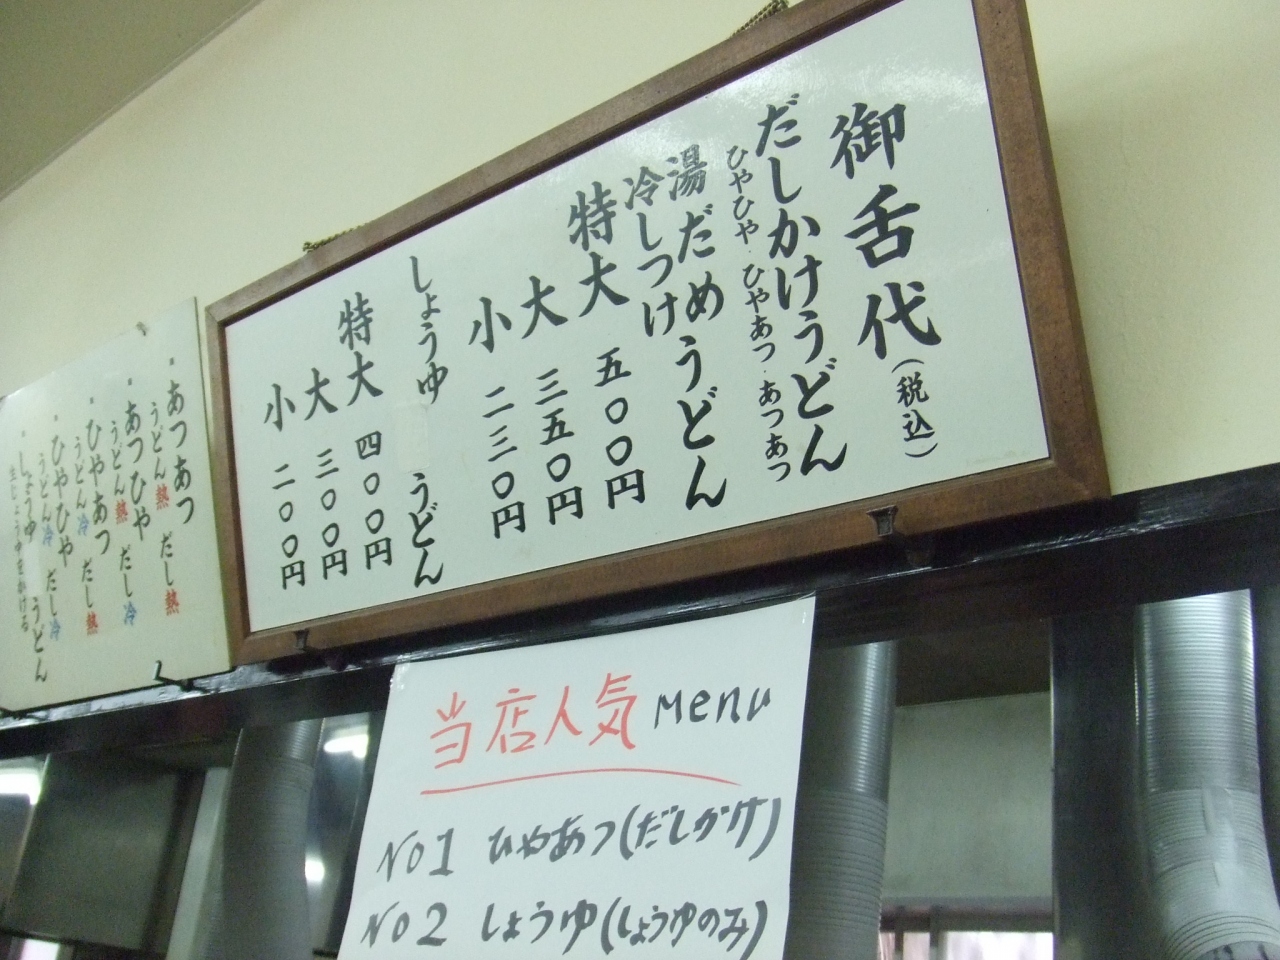 御舌代(税込)
だしかけうどん
ひやひや・ひやあつ・あつあつ
湯だめうどん
冷しつけ
特大 五〇〇円
大 三五〇円
小 二三〇円
しょうゆ うどん
特大 四〇〇円
大 三〇〇円
小 二〇〇円
・あつあつ
うどん熱 だし熱
・あつひや
うどん熱 だし冷
・ひやあつ
うどん冷 だし熱
・ひやひや
うどん冷 だし冷
・しょうゆ うどん
生じょうゆをかける
当店人気Menu
No1 ひやあつ(だしかけ)
No2 しょうゆ(しょうゆのみ)